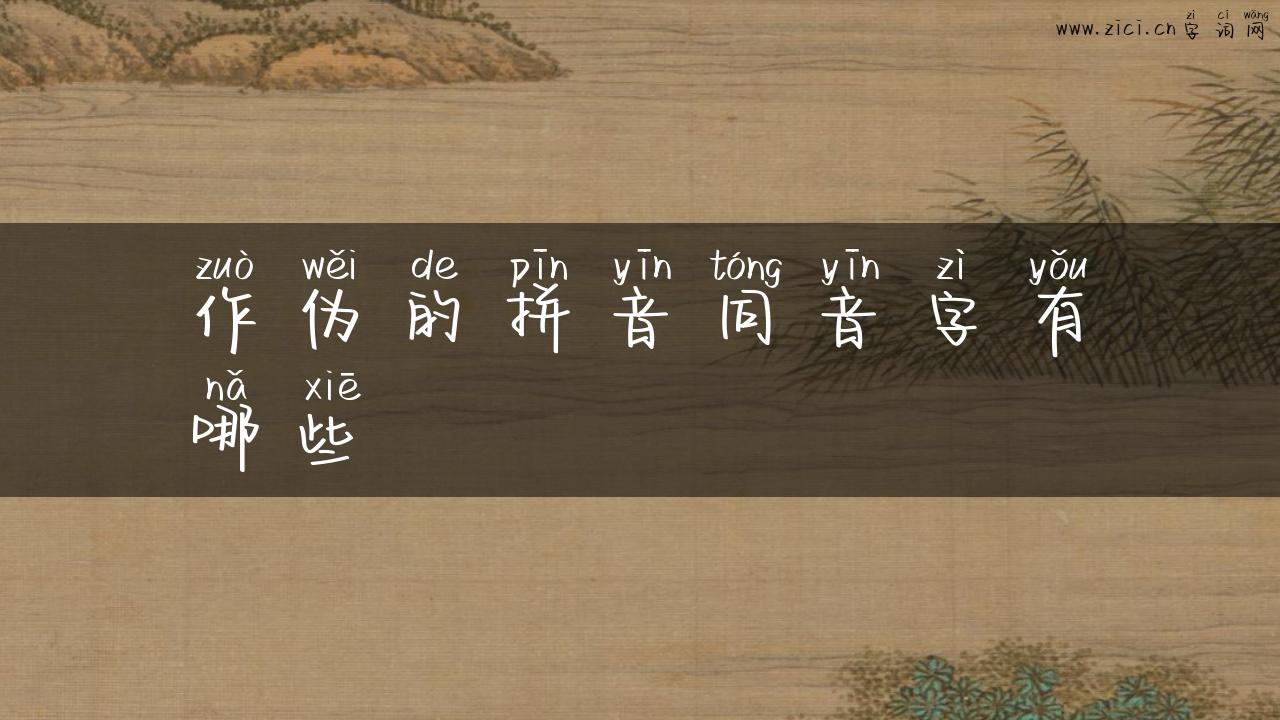 zì cí wǎng
www.zici.cn 字词网
zuò wěi de pīn yīn tóng yīn zì yǒu
作伪的拼音同音字有
nǎ xiē
哪些